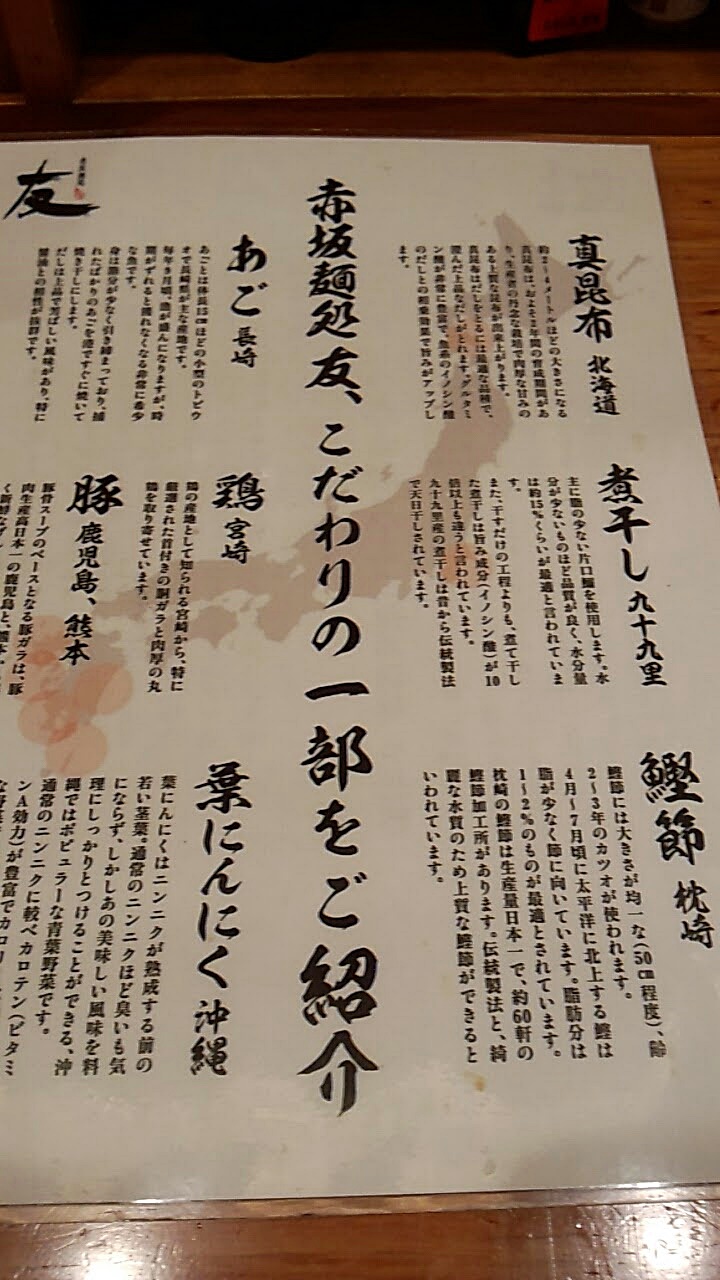 真昆布 北海道
約2〜4メートルほどの大きさになる
真昆布は、およそ2年間の育成期間があ
り、生産者の丹念な栽培で肉厚な甘みの
ある上質な昆布が出来上がります。
真昆布はだしをとるには最適な品種で、
澄んだ上品なだしがとれます。グルタミ
ン酸が非常に豊富で、魚系のイノシン酸
のだしとの相乗効果で旨みがアップし
ます。
煮干し 九十九里
主に脂の少ない片口鰯を使用します。水
分が少ないものほど品質が良く、水分量
は約15%くらいが最適と言われていま
す。
また、干すだけの工程よりも、煮て干し
た煮干しは旨み成分(イノシン酸)が10
倍以上も違うと言われています。
九十九里産の煮干しは昔から伝統製法
で天日干しされています。
鰹節 枕崎
鰹節には大きさが均一な(50cm程度)、齢
2〜3年のカツオが使われます。
4月〜7月頃に太平洋に北上する鰹は
脂が少なく節に向いています。脂肪分は
1〜2%のものが最適とされています。
枕崎の鰹節は生産量日本一で、約60軒の
鰹節加工所があります。伝統製法と、綺
麗な水質のため上質な鰹節ができると
いわれています。
赤坂麺処友、こだわりの一部をご紹介
あご 長崎
あごとは体長15cmほどの小型のトビウ
オで長崎県が主な産地です。
毎年9月頃、漁が盛んになりますが、時
期がずれると獲れなくなる非常に希少
な魚です。
身は脂分が少なく引き締まっており、捕
れたばかりのあごを港ですぐに焼いて
焼き干しにします。
だしは上品で芳ばしい風味があり、特に
醤油との相性が抜群です。
鶏 宮崎
鶏の産地として知られる宮崎から、特に
厳選された首付きの胴ガラと肉厚の丸
鶏を取り寄せています。
葉にんにく 沖縄
葉にんにくはニンニクが熟成する前の
若い茎葉。通常のニンニクほど臭いも気
にならず、しかしあの美味しい風味を料
理にしっかりとつけることができる、沖
縄ではポピュラーな青葉野菜です。
通常のニンニクに較べカロテン(ビタミ
ンA効力)が豊富でカロリー
豚 鹿児島、熊本
豚骨スープのベースとなる豚ガラは、豚
肉生産高日本一の鹿児島と、熊本
友